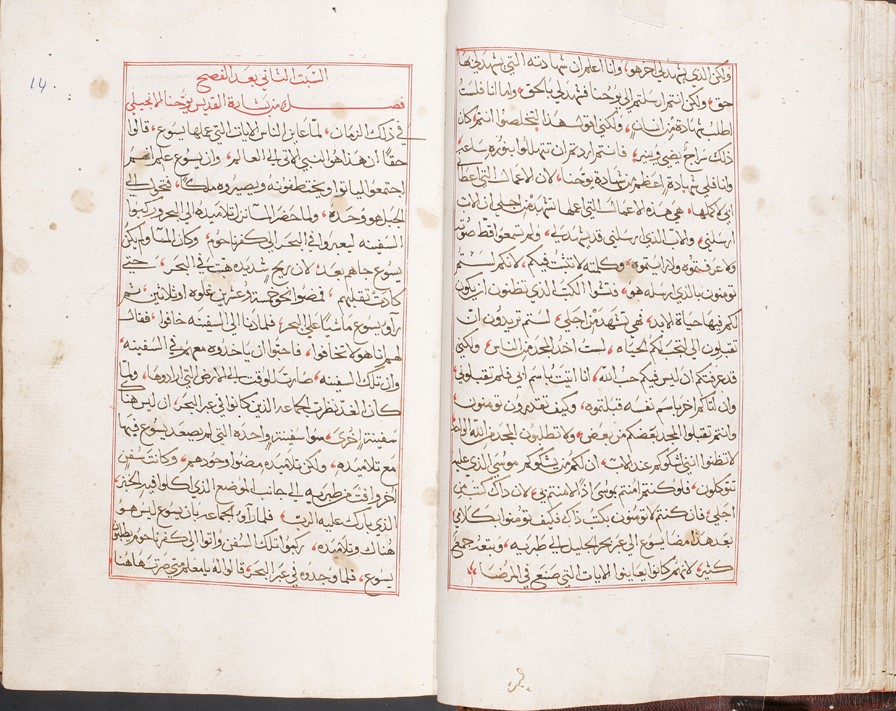 ولكن الذي يشهد لي اخر هو، وانا اعلم ان شهادته التي يشهد لي بها
حق، ولكن انتم ارسلتم الى يوحنا فشهد لي بالحق، واما انا فلست
اطلب شهادة من انسان، ولكني اقول هذا لتخلصوا انتم، كان
ذلك سراج يضي وينير، فانتم اردتم ان تتهللوا بنوره ساعة
وانا فلي شهادة اعظم من شهادة يوحنا، لان الاعمال التي اعطا
ابي لاكملها، هي هذه الاعمال التي اعملها تشهد من اجلي ان الاب
ارسلني، والاب الذي ارسلني قد شهد لي، ولم تسمعوا قط صوته
ولا عرفتموه ولا رايتموه، وكلمته لا تثبت فيكم، لانكم لستم
تومنون بالذي ارسله هو، فتشوا الكتب الذي تظنون ان يكون
لكم فيها حياة الابد، فهي تشهد من اجلي، لستم تريدون ان
تقبلون الي لتجب لكم الحياه، لست اخذ المجد من الناس، ولكني
قد عرفتكم ان ليس فيكم حب الله، انا اتيت باسم ابي فلم تقبلوني
وان اتاكم اخر باسم نفسه قبلتموه، وكيف تقدرون تومنون
وانتم تقبلوا المجد بعضكم من بعض، ولا تطلبون المجد من الله الواحد
لا تظنوا انني اشكوكم عند الاب، ان لكم من يشكوكم موسى الذي عليه
تتوكلون، فلو كنتم امنتم بموسى اذًا لامنتم بي، لان ذاك كتب من
اجلي، فان كنتم لا تومنون بكتب ذاك فكيف تومنوا بكلامي
بعد هذا مضا يسوع الى عبر بحر الجليل الى طبريه، وتبعه جمع
كثير، لانهم كانوا يعاينوا الايات التي صنع في المرضا
14
السبت الثاني بعد الفصح
فصل من بشارة القديس يوحنا الانجيلي
في ذلك الزمان، لما عاين الناس الايات التي عملها يسوع، قالوا
حقًا ان هذا هو النبي الاتي الى العالم، وان يسوع علم انهم
اجتمعوا لياتوا ويختطفونه ويصيروه ملكًا، فتحول الى
الجبل هو وحده، ولما حضر المسا نزل تلاميذه الى البحر وركبوا
السفينه ليعبروا في البحر الى كفرناحوم، وكان المسا ولم يكن
يسوع جاهم بعد، لان ريح شديده هبت في البحر، حتى
كادت تقلبهم، فمضوا نحو خمسة وعشرين غلوه او ثلاثين، ثم
رآو يسوع ماشيًا على البحر، فلما دنا الى السفينه خافوا، فقال
لهم انا هو لا تخافوا، فاحبوا ان ياخذوه معهم في السفينه،
وان تلك السفينه، صارت للوقت الى الارض التي ارادوها، ولما
كان الغد نظرت الجماعه الذين كانوا في عبر البحر، ان ليس هناك
سفينة اخرى، سوا سفينة واحده التي لم يصعد يسوع فيها
مع تلاميذه، ولكن تلاميذه مضوا وحدهم، وكانت سفن
اخر وافت من طبريه الى جانب الموضع الذي اكلوا فيه الخبز
الذي بارك عليه الرب، فلما رآو الجماعه بان يسوع ليس هو
هناك وتلاميذه، ركبوا تلك السفن واتوا الى كفرناحوم يطلبون
يسوع، فلما وجدوه في عبر البحر، قالوا له يا معلم متى صرت هاهنا